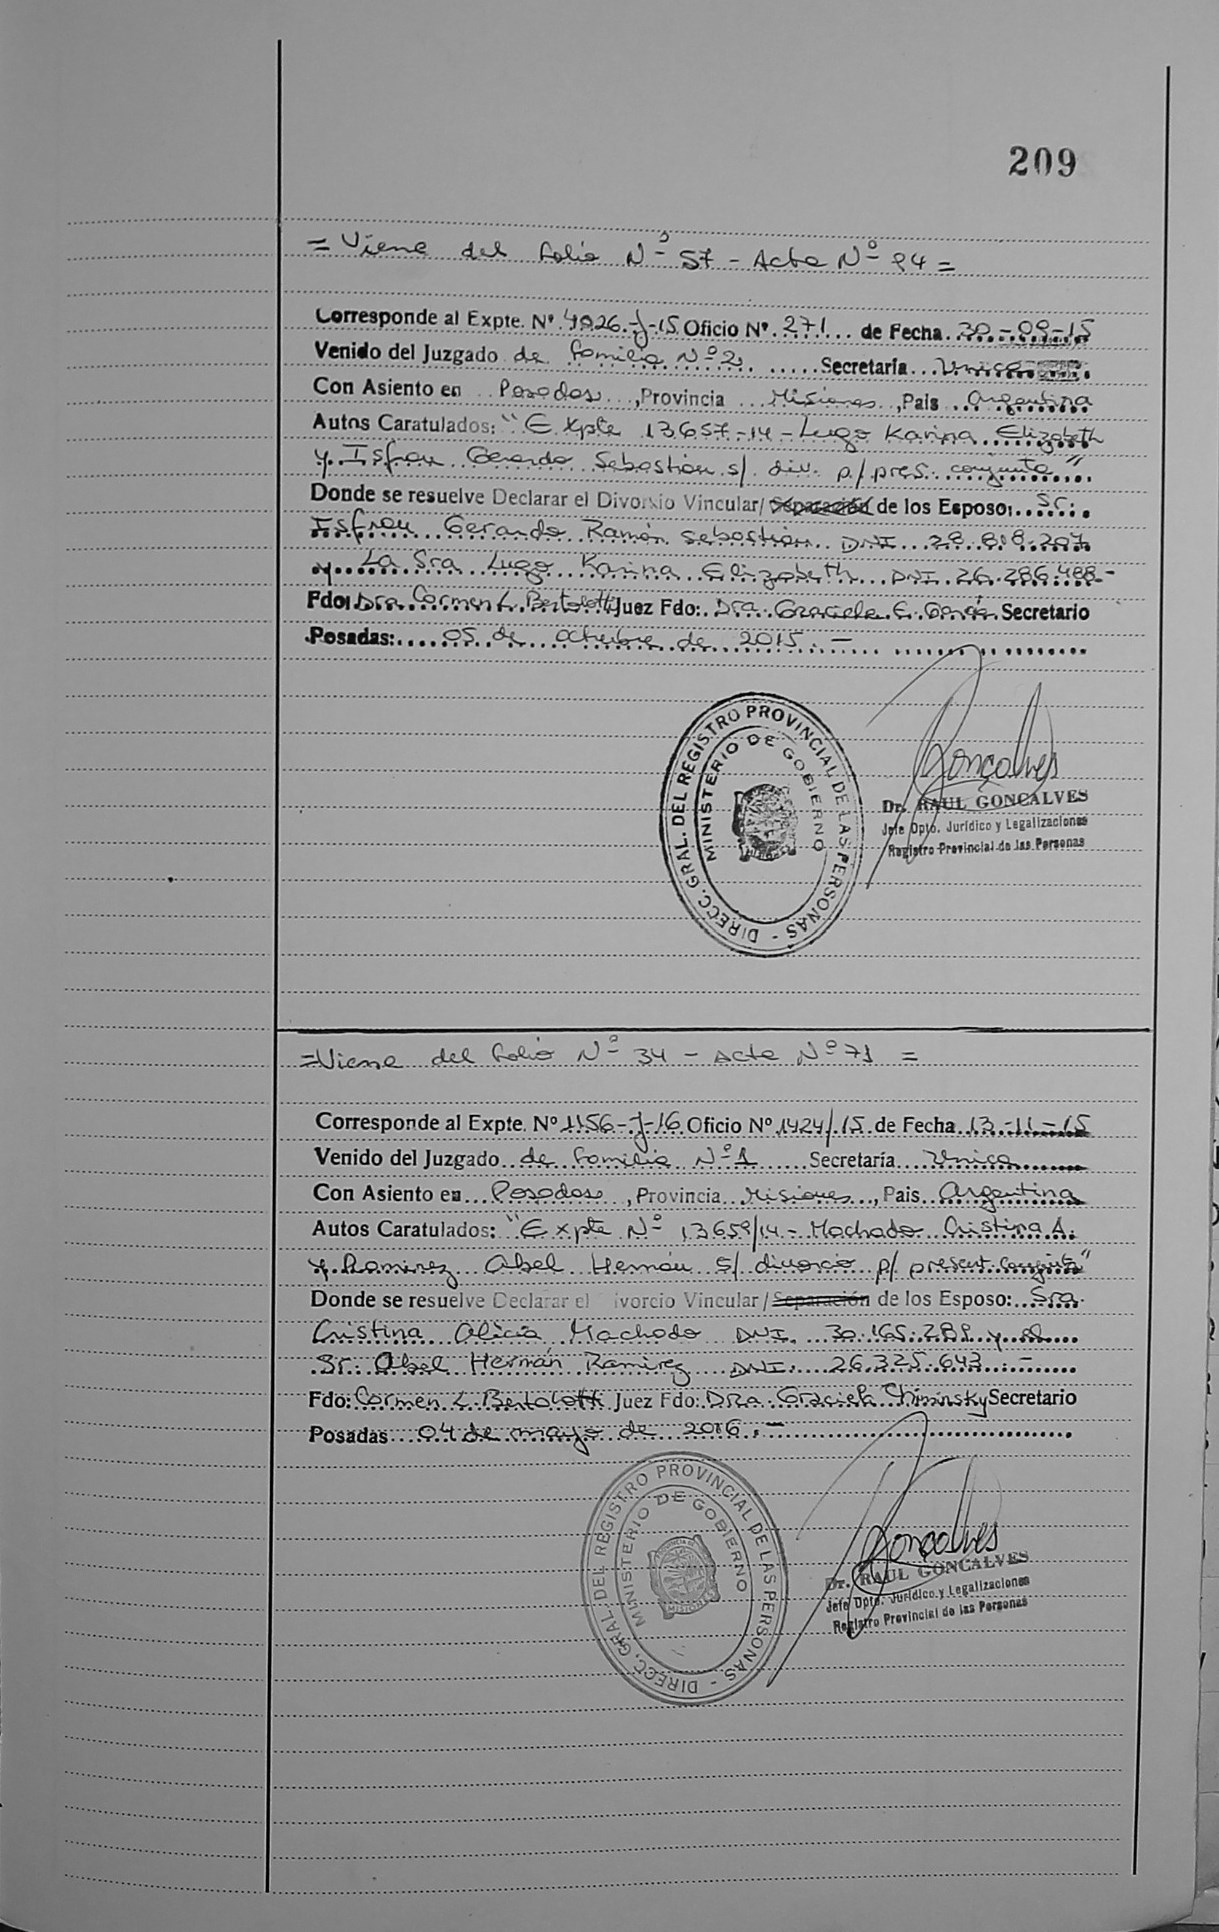 209
= Viene del folio Nº 57 - Acta Nº 94 =
Corresponde al Expte. Nº 4926-J-15 Oficio Nº 271 de Fecha 30-09-15
Venido del Juzgado de Familia Nº 2 Secretaría Unica
Con Asiento en Posadas, Provincia Misiones, País Argentina
Autos Caratulados: "Expte 13657-14 - Lugo Karina Elizabeth
y Isfran Gerardo Sebastián s/ div. p/ pres. conjunta"
Donde se resuelve Declarar el Divorsio Vincular/ Separación de los Esposo: Sr.
Isfran Gerardo Ramón Sebastián DNI 28.808.207
y La Sra Lugo Karina Elizabeth DNI 26.286.488-
Fdo: Dra Carmen L. Bertolotti Juez Fdo: Dra. Graciela E. Secretario
Posadas: 05 de octubre de 2015.-
DIRECC. GRAL. DEL REGISTRO PROVINCIAL DE LAS PERSONAS -
MINISTERIO DE GOBIERNO
Goncalves
Dr. RAUL GONCALVES
Jefe Dpto. Jurídico y Legalizaciones
Registro Provincial de las Personas
= Viene del folio Nº 34 - Acta Nº 71 =
Corresponde al Expte. Nº 1156-J-16 Oficio Nº 1424/15 de Fecha 13-11-15
Venido del Juzgado de Familia Nº 1 Secretaría Unica
Con Asiento en Posadas, Provincia Misiones, País Argentina
Autos Caratulados: "Expte Nº 13659/14 - Machado Cristina A.
y Ramirez Abel Hernán s/ divorcio p/ present. conjunta"
Donde se resuelve Declarar el ivorcio Vincular/ Separación de los Esposo: Sra.
Cristina Alicia Machado DNI. 30.165.281 y el
Sr. Abel Hernán Ramirez DNI. 26.325.643.-
Fdo: Carmen L. Bertolotti Juez Fdo: Dra. Graciela Secretario
Posadas 04 de mayo de 2016.-
DIRECC. GRAL. DEL REGISTRO PROVINCIAL DE LAS PERSONAS -
MINISTERIO DE GOBIERNO
Goncalves
Dr. RAUL GONCALVES
Jefe Dpto. Jurídico y Legalizaciones
Registro Provincial de las Personas